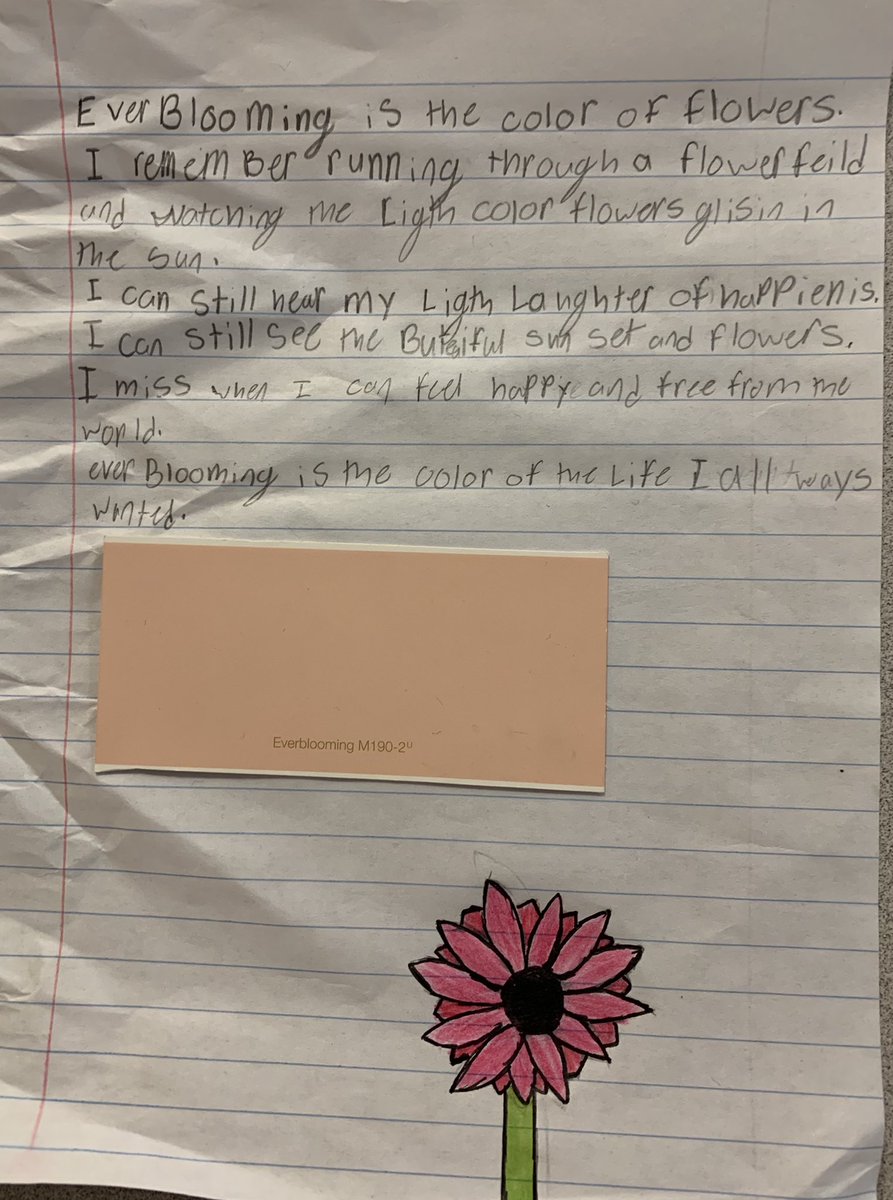 EverBlooming is the color of flowers.
I remember running through a flower feild
and watching the Ligth color flowers glisin in
the sun.
I can still hear my Ligth Laughter of happienis.
I can still see the Buteiful sun set and flowers.
I miss when I can feel happy and free from the
world.
ever Blooming is the color of the Life I allways
wanted.
Everblooming M190-2U